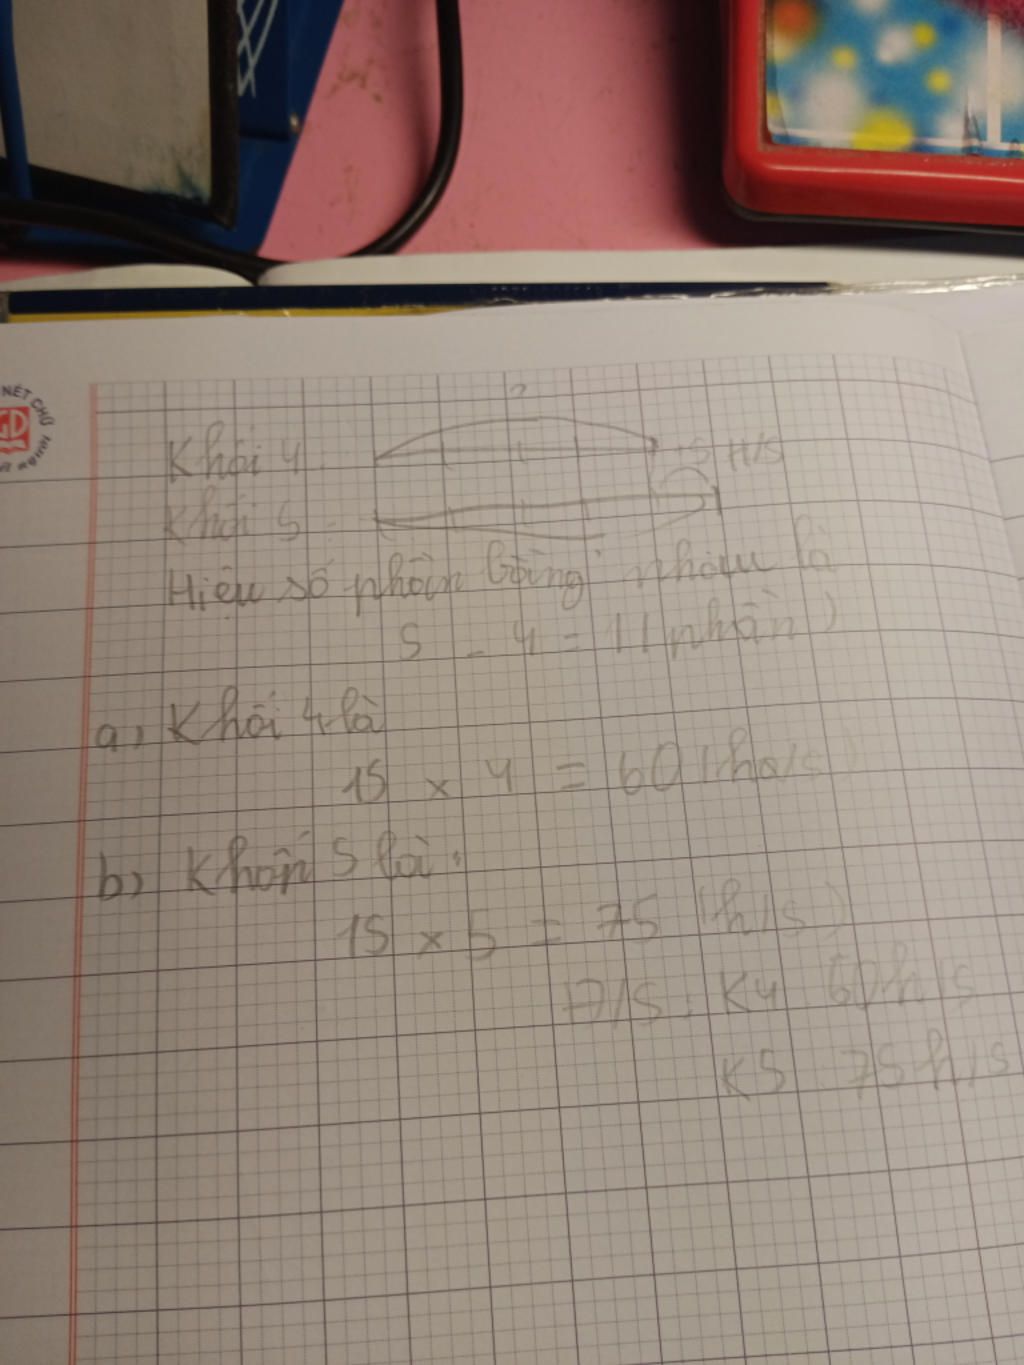 NÉT CHỮ
GD
?
Khối 4 :
15 H/S
Khối 5 :
Hiệu số phần bằng nhau là
5 - 4 = 1 (phần)
a) Khối 4 là
15 × 4 = 60 (h/s)
b) Khối 5 là :
15 × 5 = 75 (h/s)
Đ/S : K4 60 h/s
K5 75 h/s